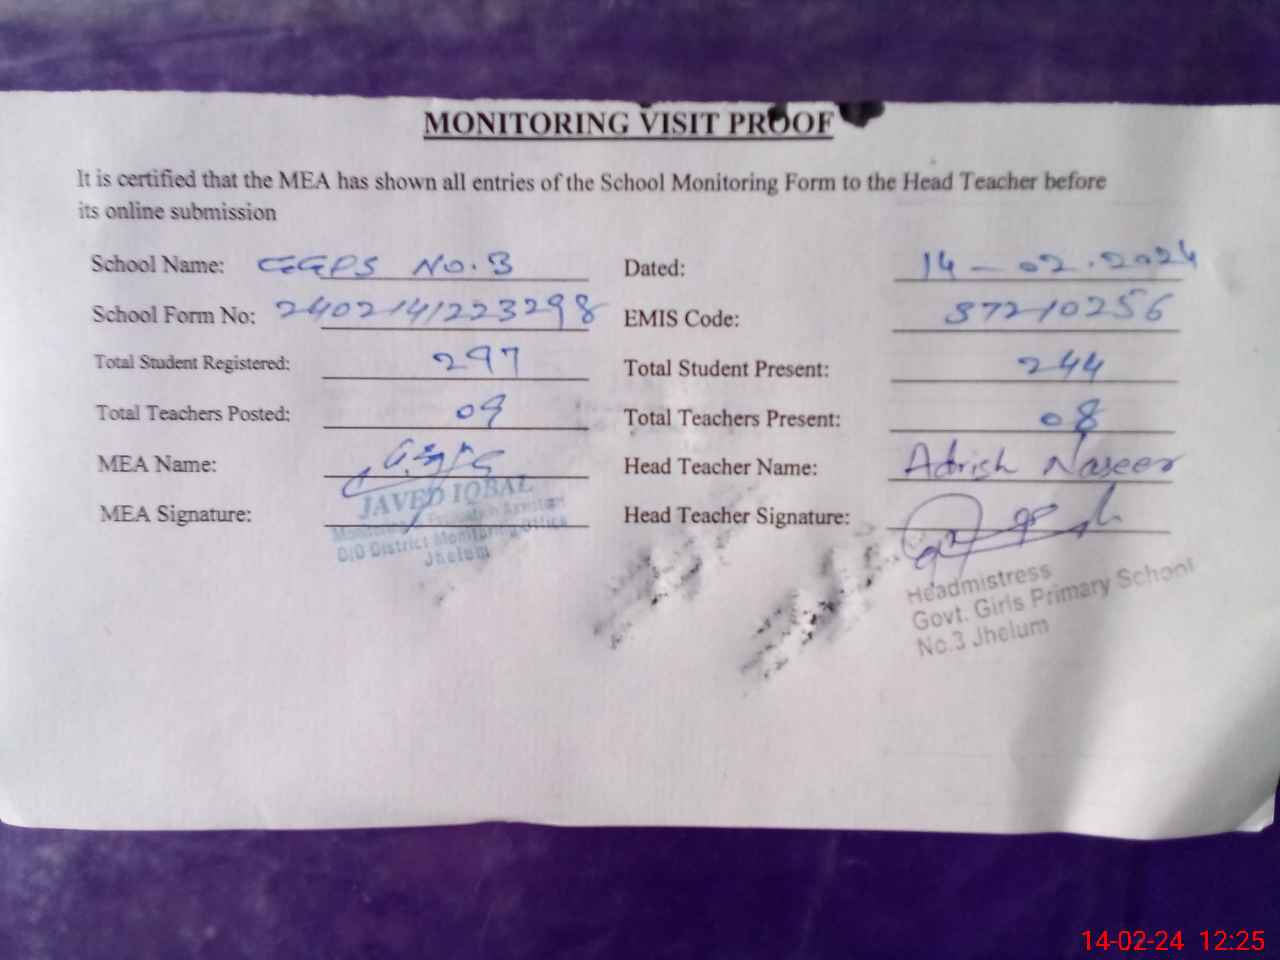 MONITORING VISIT PROOF
It is certified that the MEA has shown all entries of the School Monitoring Form to the Head Teacher before
its online submission
School Name: GGPS No. 3 Dated: 14-02.2024
School Form No: 2402141223298 EMIS Code: 37210256
Total Student Registered: 297 Total Student Present: 244
Total Teachers Posted: 09 Total Teachers Present: 08
MEA Name: Head Teacher Name: Adrish Naseer
MEA Signature: Head Teacher Signature:
JAVED IQBAL
Monitoring & Evaluation Assistant
O/O District Monitoring Office
Jhelum
Headmistress
Govt. Girls Primary School
No.3 Jhelum
14-02-24 12:25